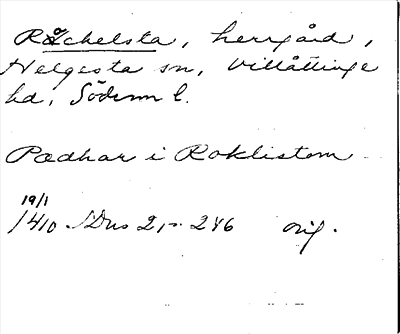 Räckelsta, herrgård,
Helgesta sn, Villåttinge
hd, Söderm l.
Pædhar i Roklistom
19/1
1410 SDns 2, s. 246 orig.